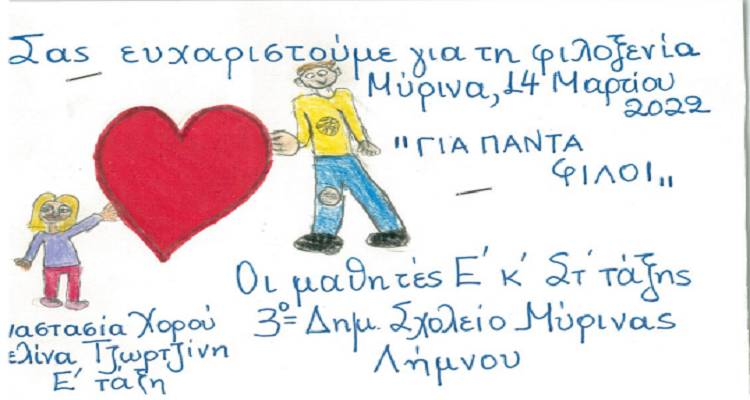 Σας ευχαριστούμε για τη φιλοξενία
Μύρινα, 14 Μαρτίου
2022
"ΓΙΑ ΠΑΝΤΑ
ΦΙΛΟΙ„
Οι μαθητές Ε' κ' Στ' τάξης
3º Δημ. Σχολείο Μύρινας
Λήμνου
ναστασία Χορού
ελίνα Τζωρτζίνη
Ε' τάξη